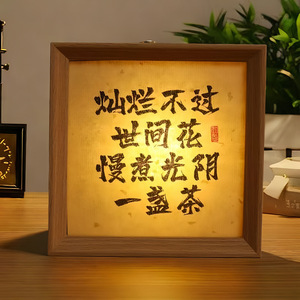 灿烂不过
世间花
慢煮光阴
一盏茶